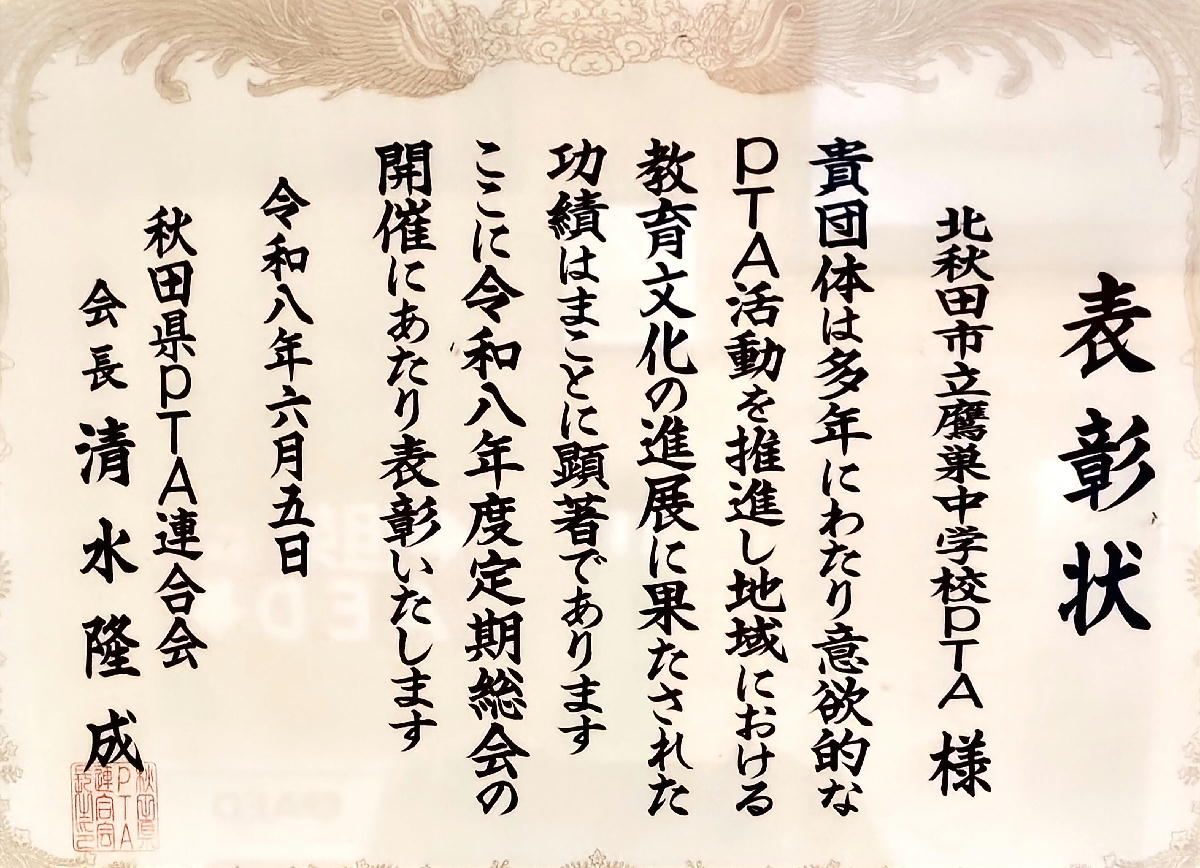 表彰状
北秋田市立鷹巣中学校PTA様
貴団体は多年にわたり意欲的な
PTA活動を推進し地域における
教育文化の進展に果たされた
功績はまことに顕著であります
ここに令和八年度定期総会の
開催にあたり表彰いたします
令和八年六月五日
秋田県PTA連合会
会長 清水隆成
秋田県
PTA
連合会
長之印